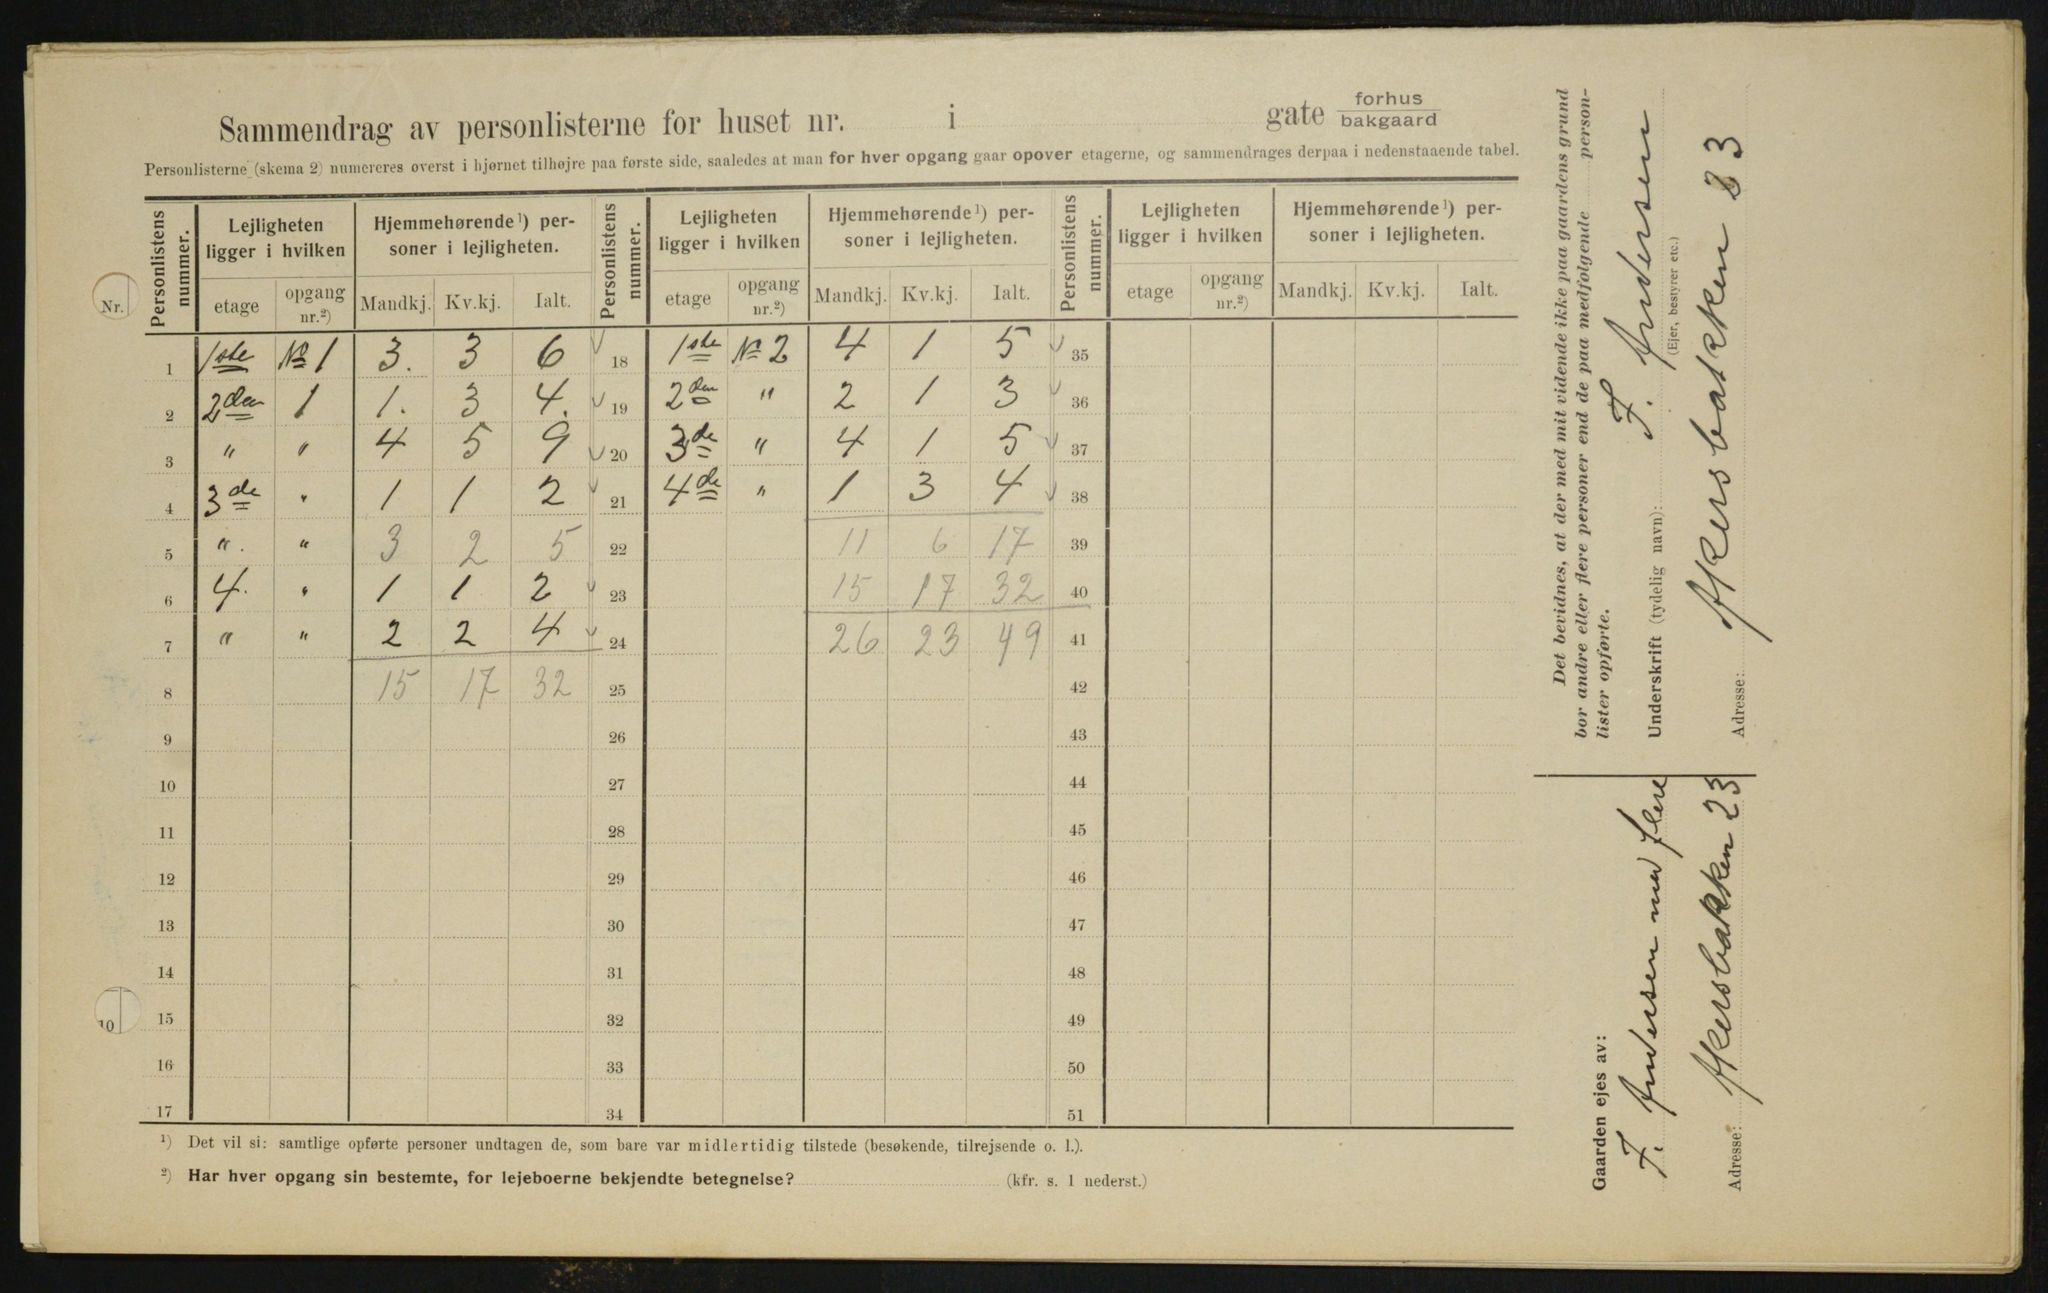 Sammendrag av personlisterne for huset nr. i gate forhus bakgaard
Personlisterne (skema 2) numereres øverst i hjørnet tilhøjre paa første side, saaledes at man for hver opgang gaar opover etagerne, og sammendrages derpaa i nedenstaaende tabel.
Nr.
Personlistens nummer. Lejligheten ligger i hvilken Hjemmehørende¹) personer i lejligheten. Personlistens nummer. Lejligheten ligger i hvilken Hjemmehørende¹) personer i lejligheten. Personlistens nummer. Lejligheten ligger i hvilken Hjemmehørende¹) personer i lejligheten.
etage opgang nr.²) Mandkj. Kv.kj. Ialt. etage opgang nr.²) Mandkj. Kv.kj. Ialt. etage opgang nr.²) Mandkj. Kv.kj. Ialt.
1 1ste No 1 3. 3 6 18 1ste No 2 4 1 5 35
2 2den 1 1. 3 4. 19 2den " 2 1 3 36
3 " " 4 5 9 20 3de " 4 1 5 37
4 3de " 1 1 2 21 4de " 1 3 4 38
5 ". " 3 2 5 22 11 6 17 39
6 4. " 1 1 2 23 15 17 32 40
7 " " 2 2 4 24 26 23 49 41
8 15 17 32 25 42
9 26 43
10 27 44
11 28 45
12 29 46
13 30 47
14 31 48
10
15 32 49
16 33 50
17 34 51
¹) Det vil si: samtlige opførte personer undtagen de, som bare var midlertidig tilstede (besøkende, tilrejsende o. l.).
²) Har hver opgang sin bestemte, for lejeboerne bekjendte betegnelse? (kfr. s. 1 nederst.)
Det bevidnes, at der med mit vidende ikke paa gaardens grund
bor andre eller flere personer end de paa medfølgende personlister opførte.
Underskrift (tydelig navn): F. Andersen
(Ejer, bestyrer etc.)
Adresse: Akersbakken 23
Gaarden ejes av:
F. Andersen med flere
Adresse: Akersbakken 23